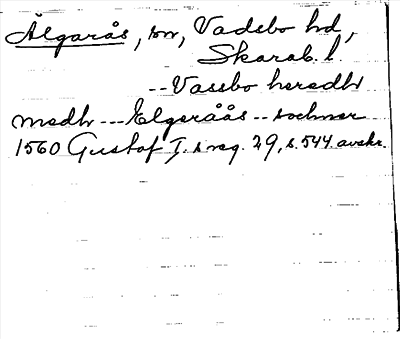 Älgarås, sn, Vadsbo hd,
Skarab. l.
-- Vassbo heredh
medh --- Elgeråås -- sochner
1560 Gustaf I. s reg. 29, s. 544 avskr.